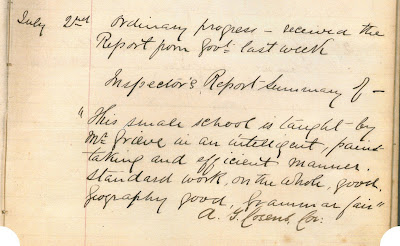 July 2nd Ordinary progress – received the
Report from Govt. last week
Inspector's Report Summary of –
"This small school is taught by
Mr Grieve in an intelligent, pains-
taking and efficient manner.
Standard work, on the whole, good.
Geography good, Grammar fair"
A. G.